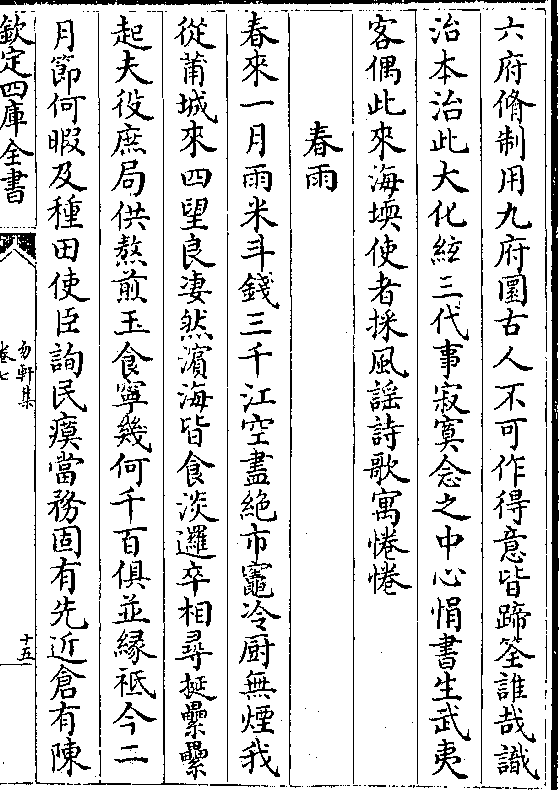 六府脩制用九府圜古人不可作得意皆蹄筌誰哉識
治本治此大化絃三代事寂寞念之中心悁書生武夷
客偶此來海堧使者採風謡詩歌寓惓惓
春雨
春來一月雨米斗錢三千江空盡絶市竈冷厨無煙我
從莆城來四望良凄然濱海皆食淡邏卒相尋挻纍纍
起夫役庶局供熬煎玉食寧幾何千百俱並縁祗今二
月節何暇及種田使臣詢民瘼當務固有先近倉有陳
欽定四庫全書
勿軒集
卷七
十五